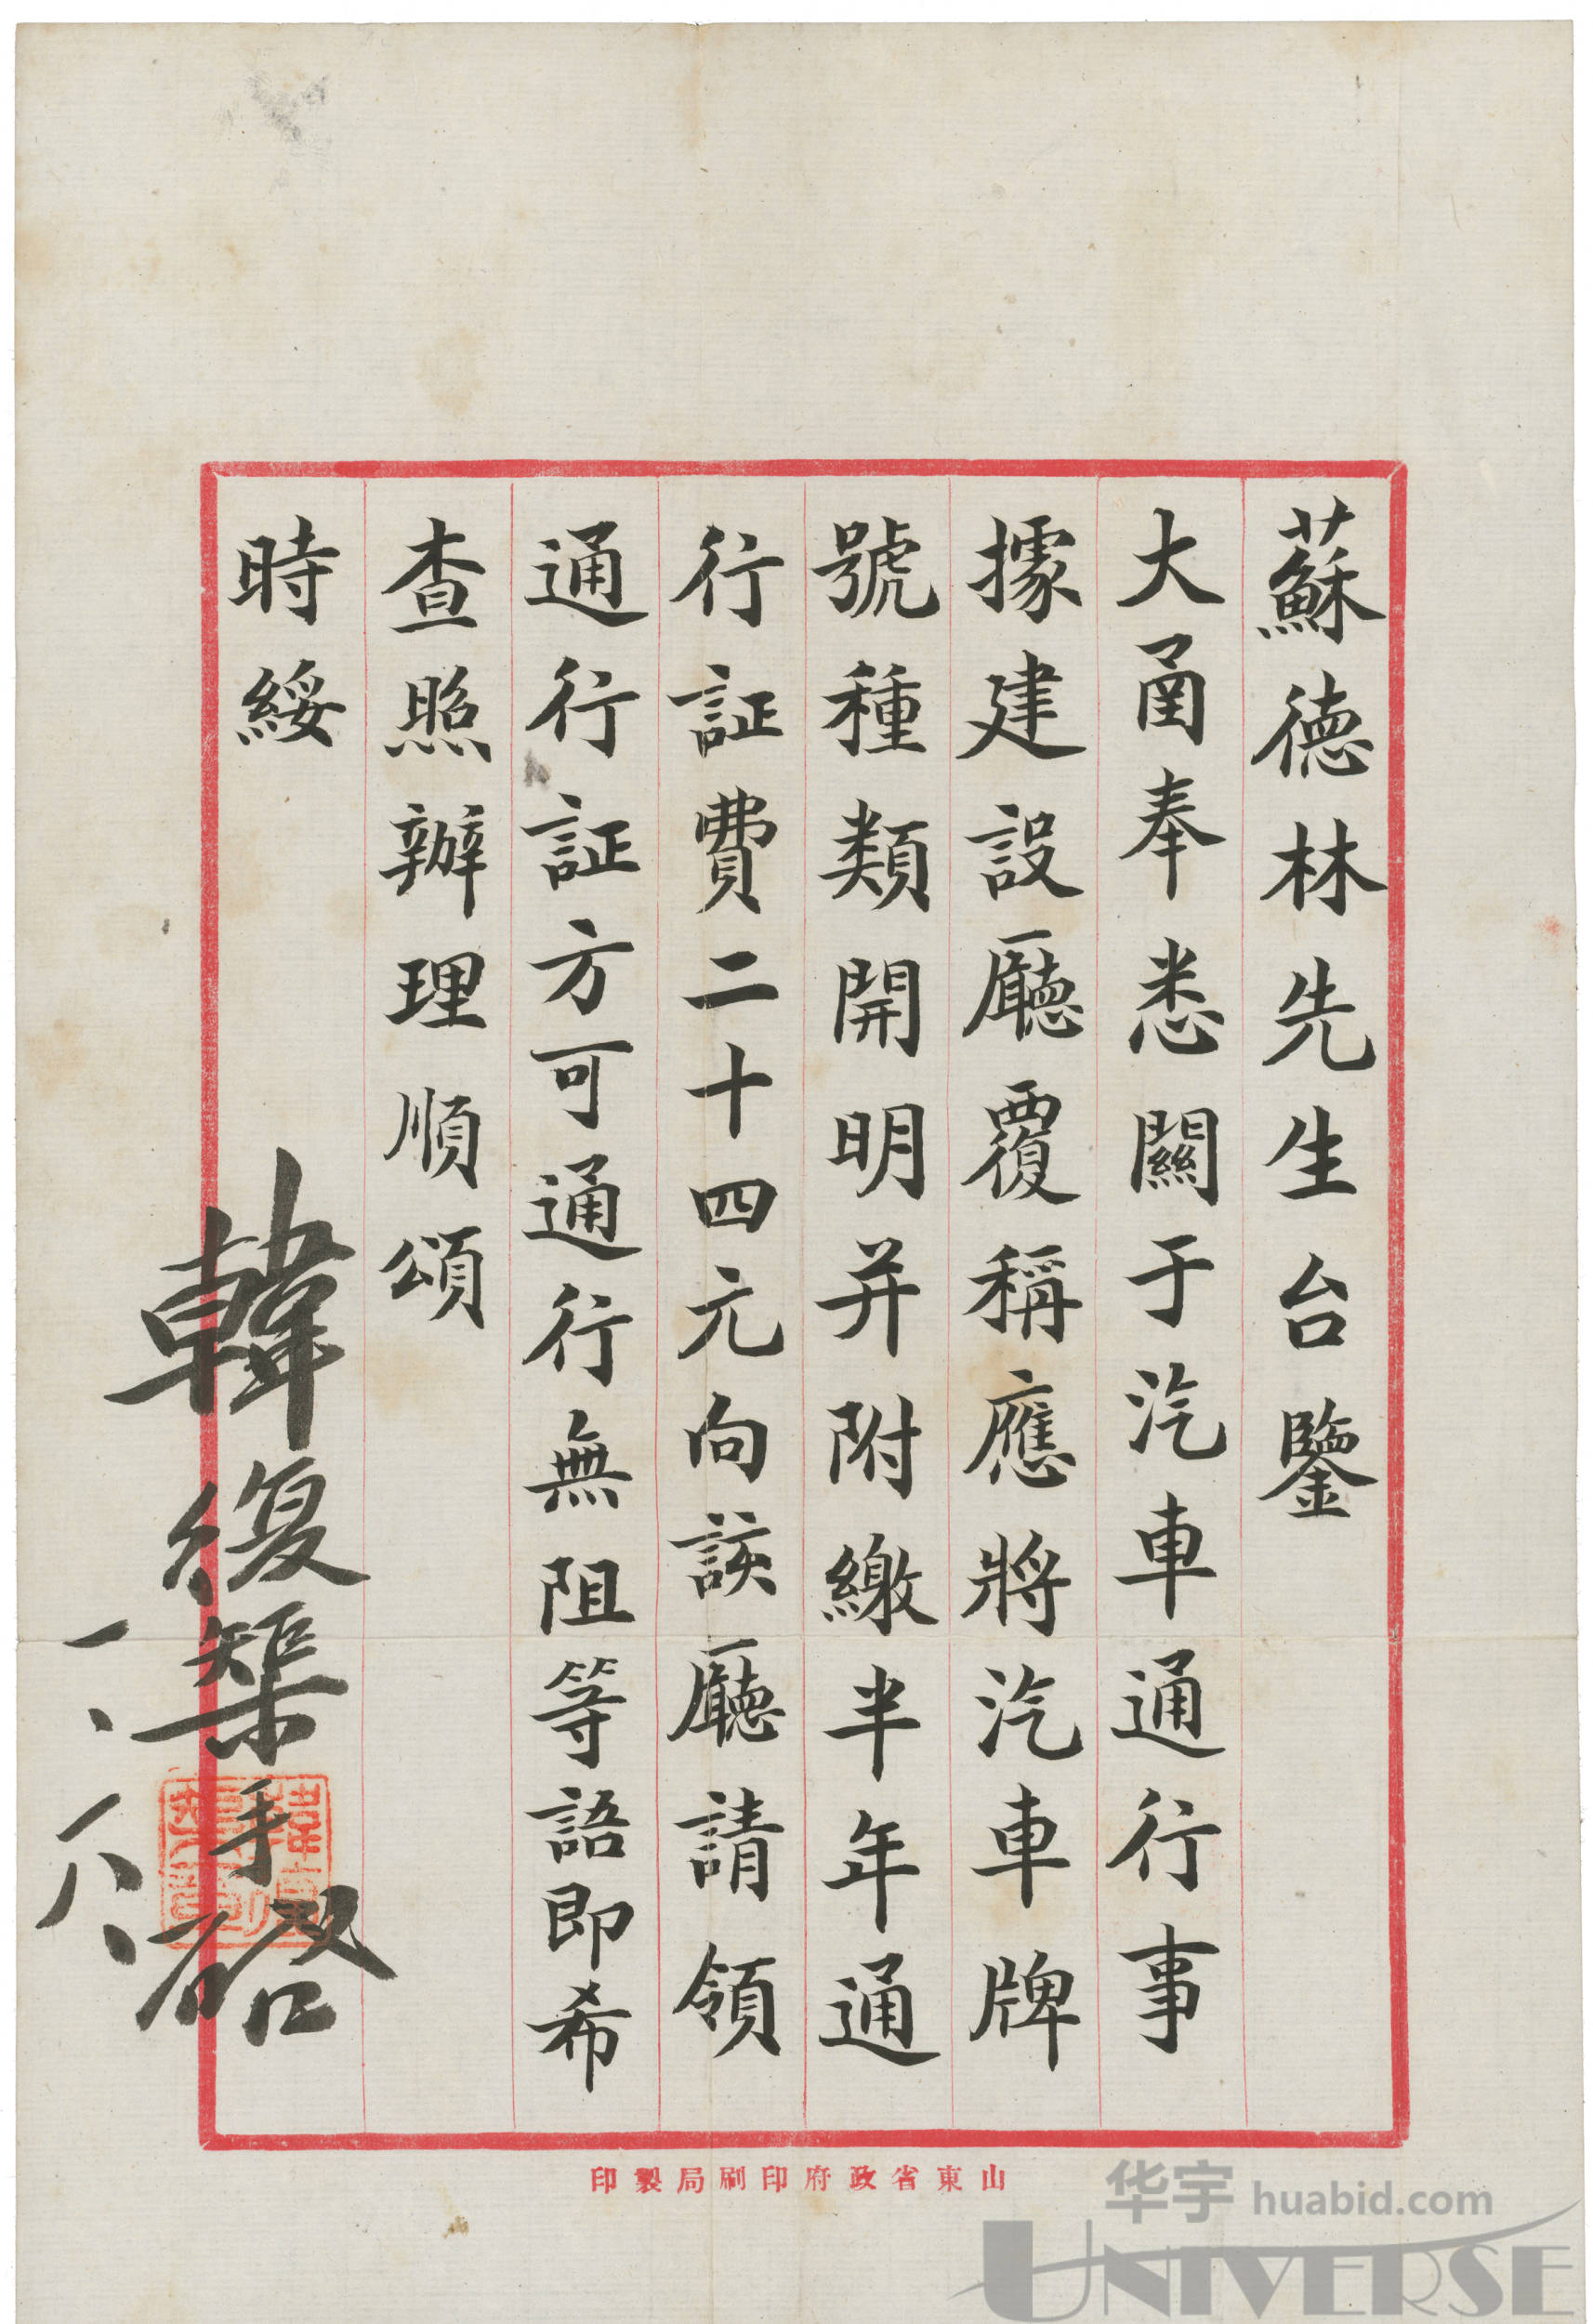 蘇德林先生台鑒
大甬奉悉關于汽車通行事
據建設廳覆稱應將汽車牌
號種類開明并附繳半年通
行証費二十四元向該廳請領
通行証方可通行無阻等語即希
查照辦理順頌
時綏
韓復榘手啓
山東省政府印刷局製印
华宇 huabid.com
UNIVERSE